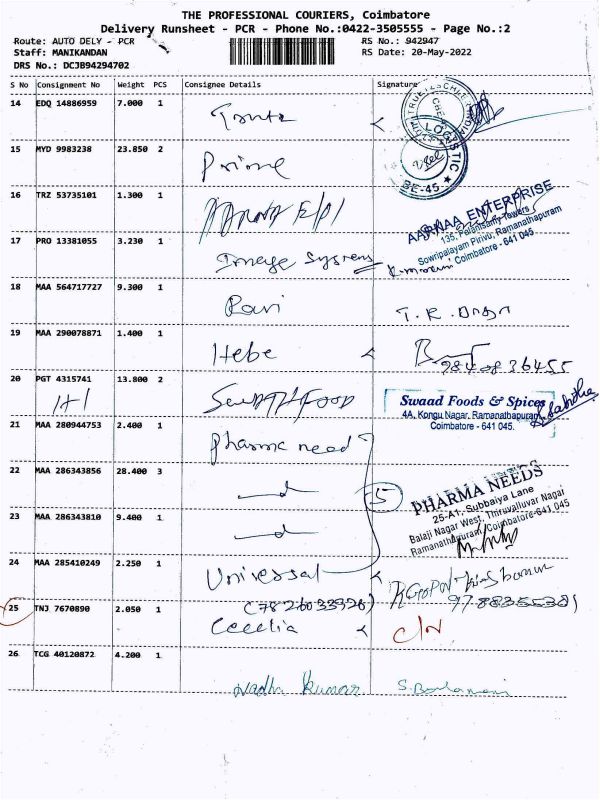 THE PROFESSIONAL COURIERS, Coimbatore
Delivery Runsheet - PCR - Phone No.:0422-3505555 - Page No.:2
Route: AUTO DELY - PCR RS No.: 942947
Staff: MANIKANDAN RS Date: 20-May-2022
DRS No.: DCJB94294702
S No Consignment No Weight PCS Consignee Details Signature
14 EDQ 14886959 7.000 1
LOGISTIC
BE-45
15 MYD 9983238 23.850 2 Prime
16 TRZ 53735101 1.300 1
AARNAA ENTERPRISE
135, Palanisamy Towers
Sowripalayam Pirivu, Ramanathapuram
Coimbatore - 641 045
17 PRO 13381055 3.230 1 Image Systems
18 MAA 564717727 9.300 1 Ravi
19 MAA 290078871 1.400 1 Hebe
20 PGT 4315741 13.800 2
Swaad Foods & Spices
4A, Kongu Nagar, Ramanathapuram,
Coimbatore - 641 045.
21 MAA 280944753 2.400 1 Pharma need
22 MAA 286343856 28.400 3
5
PHARMA NEEDS
25-A1, Subbaiya Lane
Balaji Nagar West, Thiruvalluvar Nagar
Ramanathapuram, Coimbatore-641 045
23 MAA 286343810 9.400 1
24 MAA 285410249 2.250 1 Universal
25 TNJ 7670890 2.050 1 Cecelia
26 TCG 40120872 4.200 1 Kumar